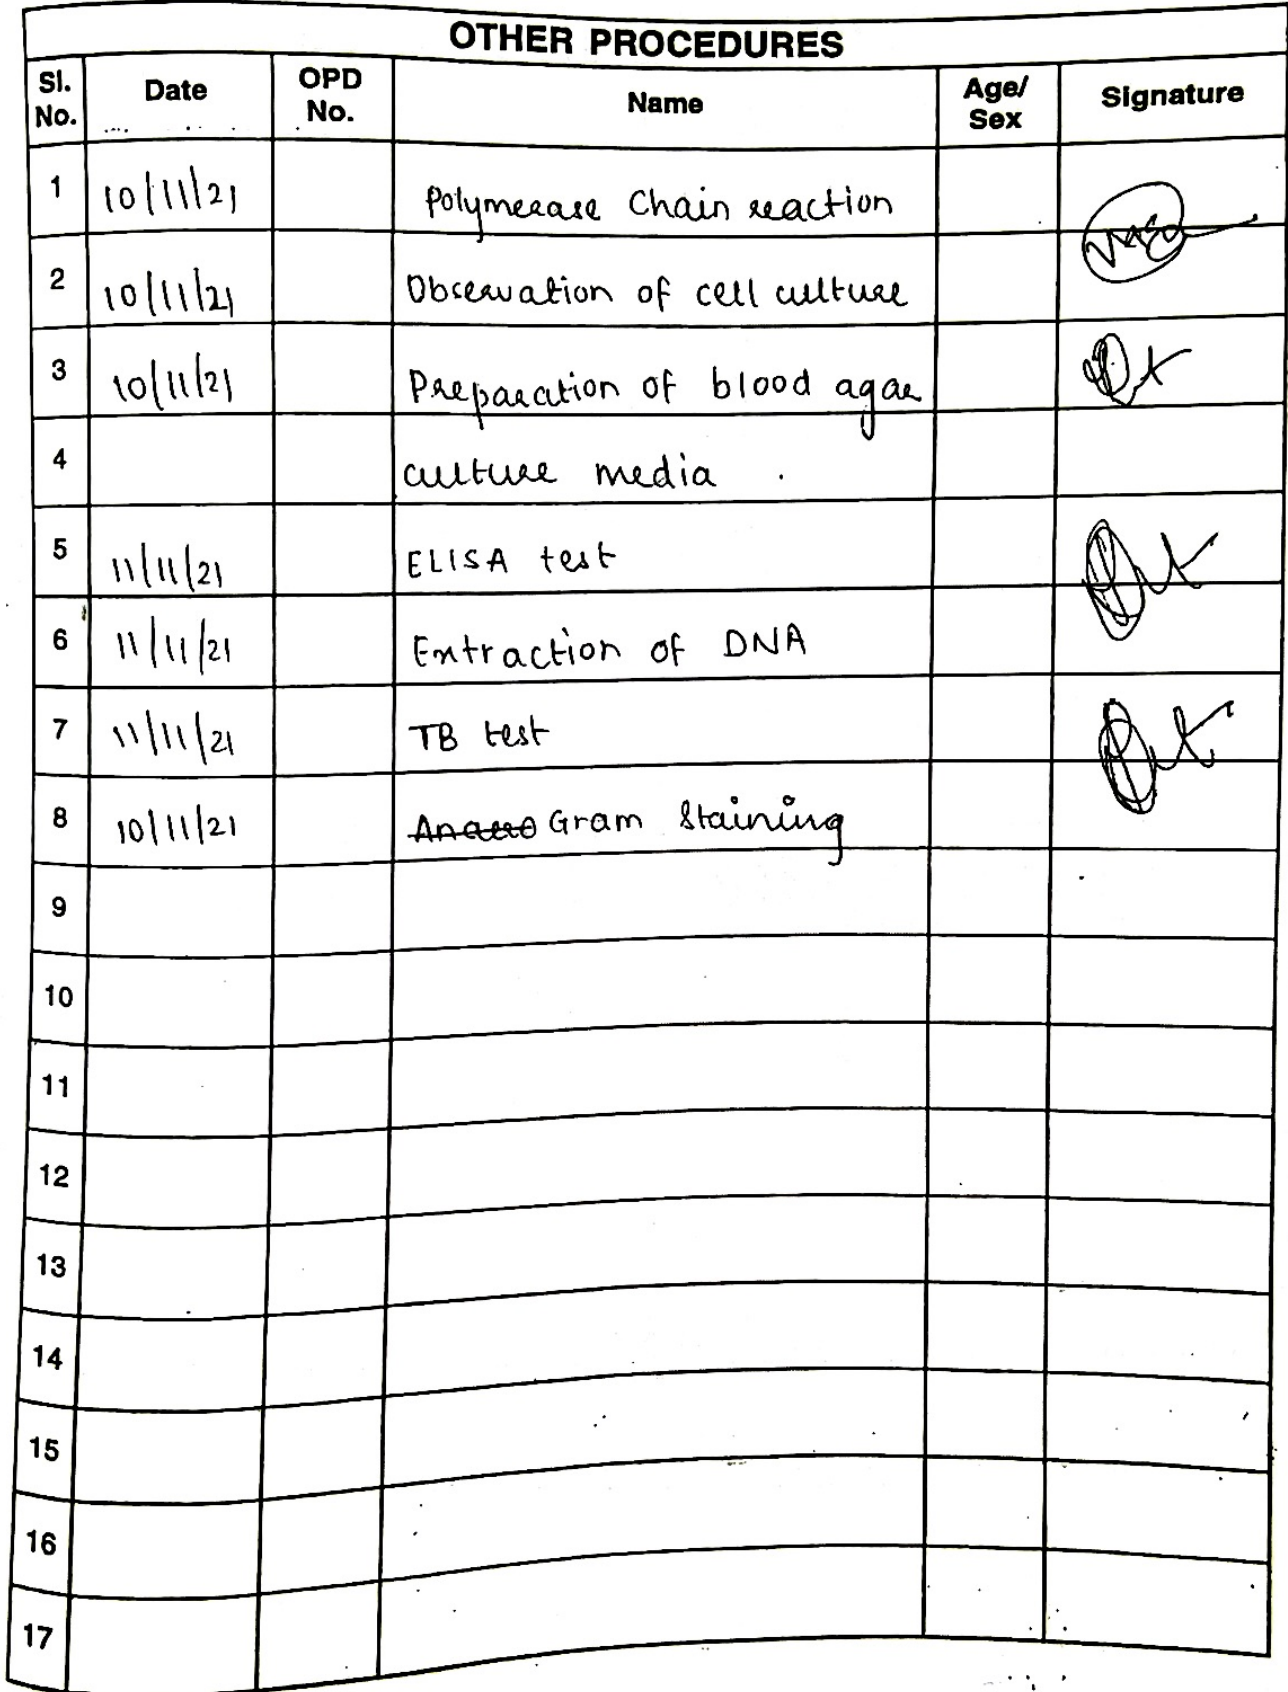 OTHER PROCEDURES
Sl. No. Date OPD No. Name Age/ Sex Signature
1 10/11/21 Polymerase Chain reaction
2 10/11/21 Observation of cell culture
3 10/11/21 Preparation of blood agar
4 culture media .
5 11/11/21 ELISA test
6 11/11/21 Extraction of DNA
7 11/11/21 TB test
8 10/11/21 Gram Staining
9
10
11
12
13
14
15
16
17